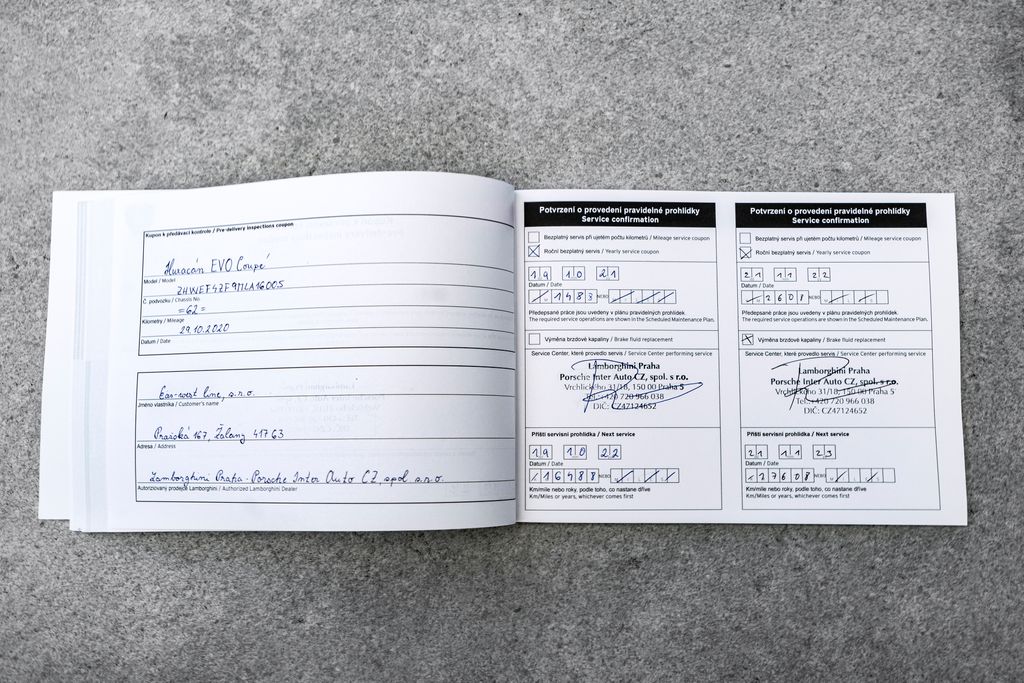 Kupon k předávací kontrole / Pre-delivery inspections coupon
Huracán EVO Coupé
Model / Model
Č. podvozku / Chassis No.
=62=
Kilometry / Mileage
29.10.2020
Datum / Date
Eas-west line, s.r.o.
Jméno vlastníka / Customer's name
Pražská 167, Žalany 417 63
Adresa / Address
Lamborghini Praha - Porsche Inter Auto CZ, spol s.r.o.
Autorizovaný prodejce Lamborghini / Authorized Lamborghini Dealer
Potvrzení o provedení pravidelné prohlídky
Service confirmation
Bezplatný servis při ujetém počtu kilometrů / Mileage service coupon
Roční bezplatný servis / Yearly service coupon
19 10 21
Datum / Date
1483 NEBO
Předepsané práce jsou uvedeny v plánu pravidelných prohlídek.
The required service operations are shown in the Scheduled Maintenance Plan.
Výměna brzdové kapaliny / Brake fluid replacement
Service Center, které provedlo servis / Service Center performing service
Lamborghini Praha
Porsche Inter Auto CZ, spol. s r.o.
Vrchlického 31/18, 150 00 Praha 5
Tel.: +420 720 966 038
DIČ: CZ47124652
Příští servisní prohlídka / Next service
19 10 22
Datum / Date
16488 NEBO
Km/míle nebo roky, podle toho, co nastane dříve
Km/Miles or years, whichever comes first
Potvrzení o provedení pravidelné prohlídky
Service confirmation
Bezplatný servis při ujetém počtu kilometrů / Mileage service coupon
Roční bezplatný servis / Yearly service coupon
21 11 22
Datum / Date
2608 NEBO
Předepsané práce jsou uvedeny v plánu pravidelných prohlídek.
The required service operations are shown in the Scheduled Maintenance Plan.
Výměna brzdové kapaliny / Brake fluid replacement
Service Center, které provedlo servis / Service Center performing service
Lamborghini Praha
Porsche Inter Auto CZ, spol. s r.o.
Vrchlického 31/18, 150 00 Praha 5
Tel.: +420 720 966 038
DIČ: CZ47124652
Příští servisní prohlídka / Next service
21 11 23
Datum / Date
27608 NEBO
Km/míle nebo roky, podle toho, co nastane dříve
Km/Miles or years, whichever comes first